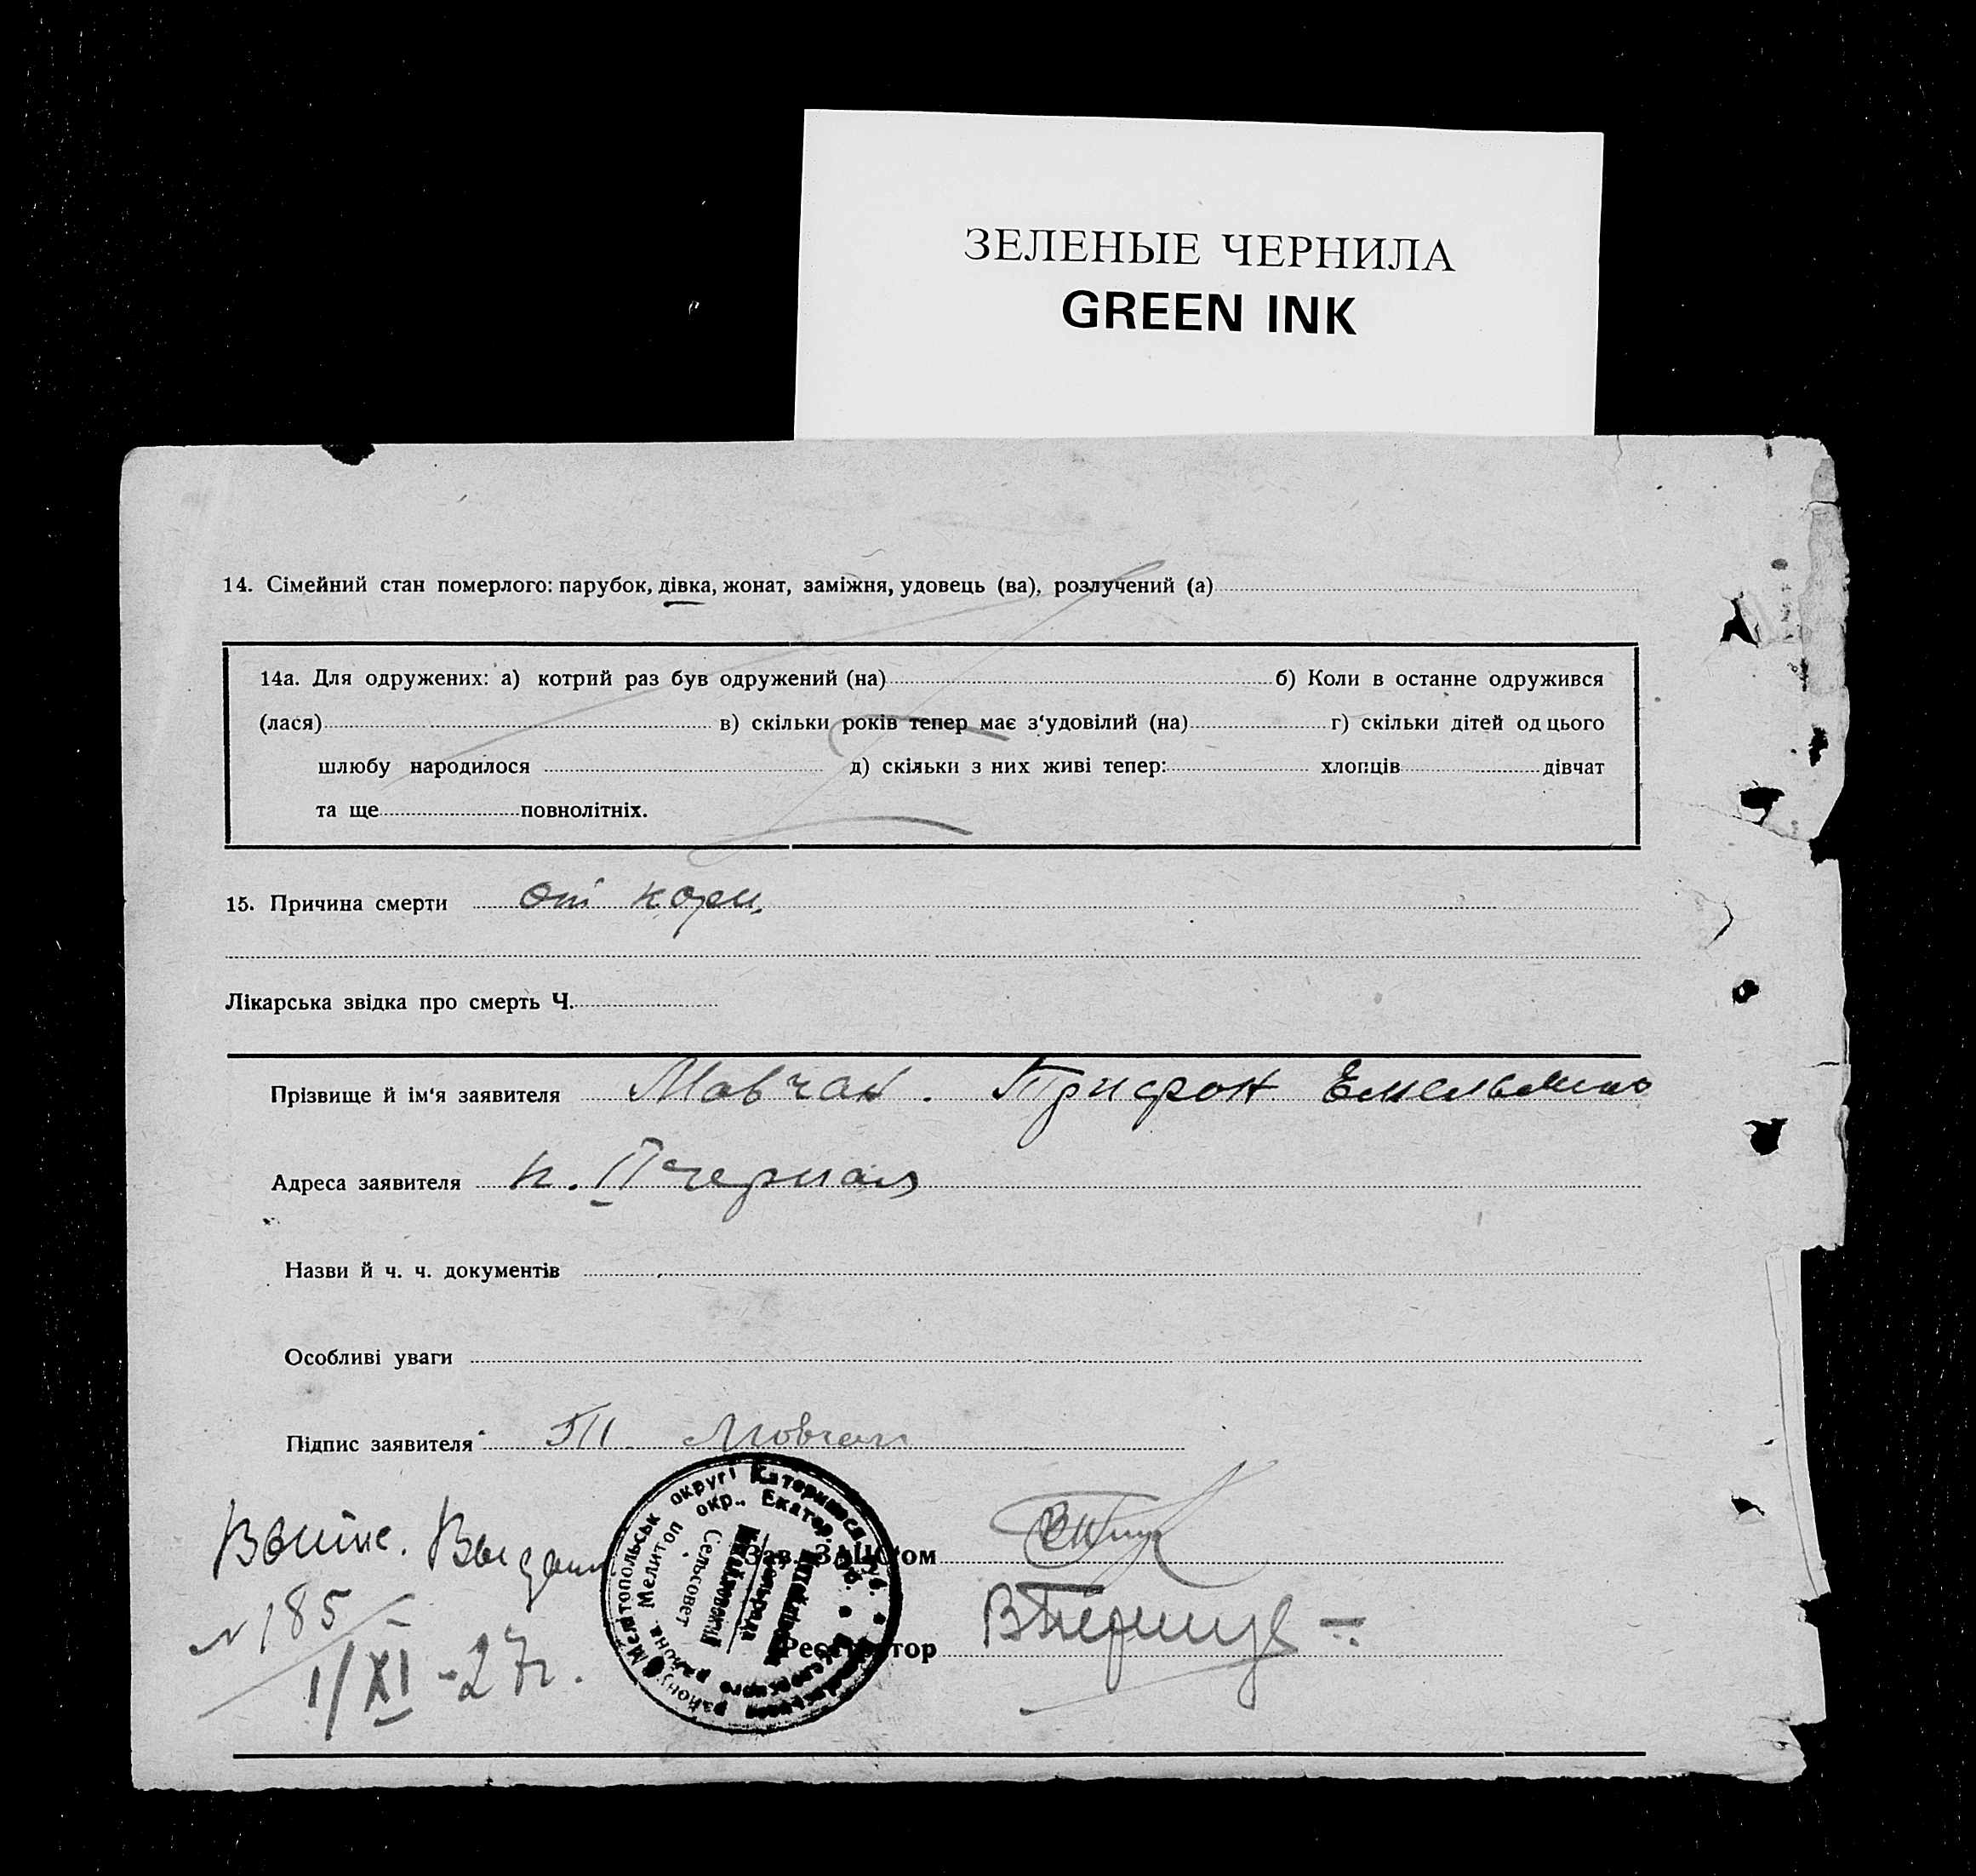 ЗЕЛЕНЫЕ ЧЕРНИЛА
GREEN INK
14. Сімейний стан померлого: парубок, дівка, жонат, заміжня, удовець (ва), розлучений (а)
14а. Для одружених: а) котрий раз був одружений (на) б) Коли в останне одружився
(лася) в) скільки років тепер має з'удовілий (на) г) скільки дітей од цього
шлюбу народилося д) скільки з них живі тепер: хлопців дівчат
та ще повнолітніх.
15. Причина смерти от кори.
Лікарська звідка про смерть Ч.
Прізвище й ім'я заявителя Мовчан. Трифон
Адреса заявителя п. II черная
Назви й ч. ч. документів
Особливі уваги
Підпис заявителя Мовчан
Зав. ЗАЦС'ом
Реєстратор
№ 185
1/XI - 27 г.
Мелітопольськ округі
Мелитоп окр., Екатер.
Сельсовет